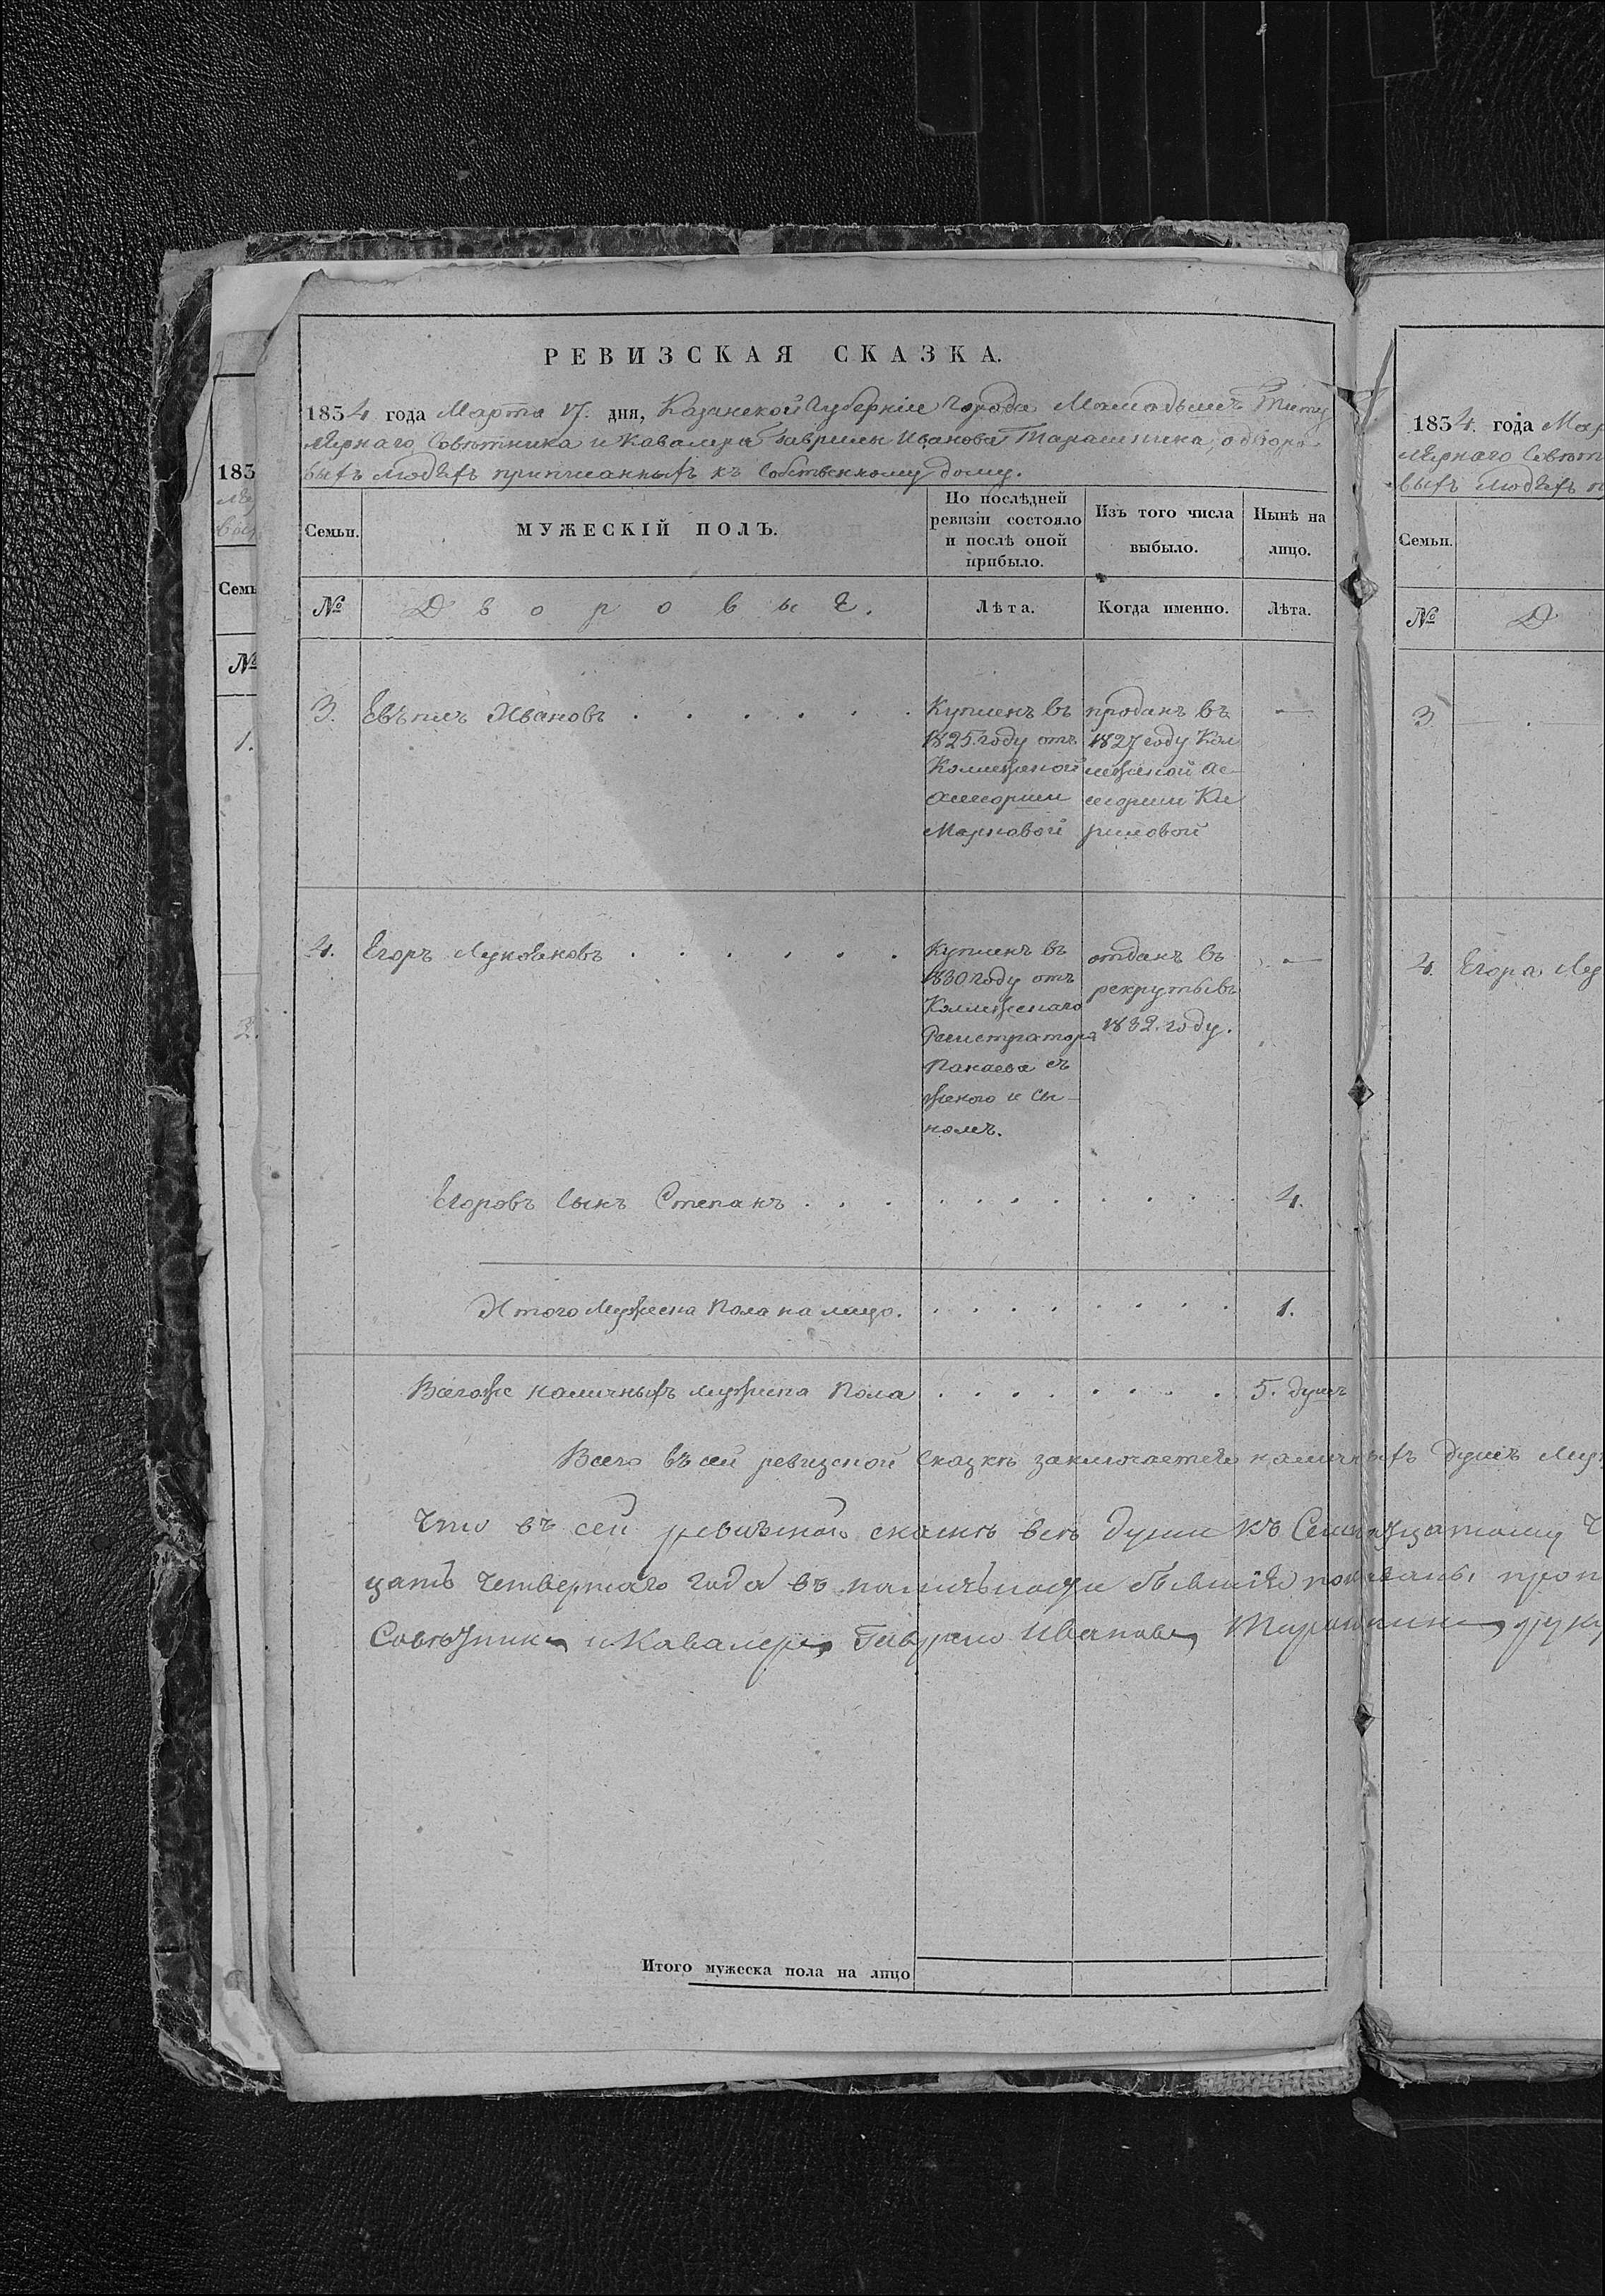 РЕВИЗСКАЯ СКАЗКА.
1834 года Марта 17. дня, Казанской Губерніи Города Мамадыша Титу
лярнаго Совѣтника и Кавалера Гаврилы Иванова Тарашнина, о дворо
выхъ людѣхъ приписанныхъ къ собственному дому.
Семьи. МУЖЕСКІЙ ПОЛЪ. По послѣдней ревизіи состояло и послѣ оной прибыло. Изъ того числа выбыло. Нынѣ на лицо.
№ Дворовыя. Лѣта. Когда именно. Лѣта.
3. Ивановъ . . . . . . Купленъ въ продакъ въ —
1825. году отъ 1827 году Кол
Колежской лежской Ас-
Асесорши сесорши Ки
Марковой риловой
4. Егоръ Лукояновъ . . . . . . Купленъ въ отданъ въ —
1830 году отъ рекруты въ
Колежскаго 1832. году.
Регистратора
Панаева съ
женою и сы-
номъ.
Егоровъ сынъ Степанъ . . . . . . . . . 4.
Итого Мужеска Пола на лицо. . . . . . . . . 1.
Всегоже наличныхъ мужеска Пола . . . . . . . . 5. душъ
Всего въ сей ревизской сказкѣ заключается наличныхъ душъ Муж
Что въ сей ревизской сказкѣ всѣ души къ Семнадцатому Ч
цать четвертаго года въ наличности бывшіе показаны, проп
Совѣтника и Кавалера Гаврило Иванова Тарашнина руку
Итого мужеска пола на лицо
1834. года Мар
лярнаго Совѣтн
выхъ людѣхъ п
Семьи.
№ Д
3
4. Егора Лу
183
Семь
№
1.
2.